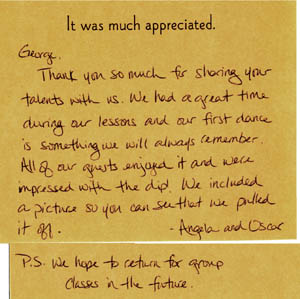 It was much appreciated.
George,
Thank you so much for sharing your
talents with us. We had a great time
during our lessons and our first dance
is something we will always remember.
All of our guests enjoyed it and were
impressed with the dip! We included
a picture so you can see that we pulled
it off.
- Angela and Oscar
P.S. We hope to return for group
classes in the future.